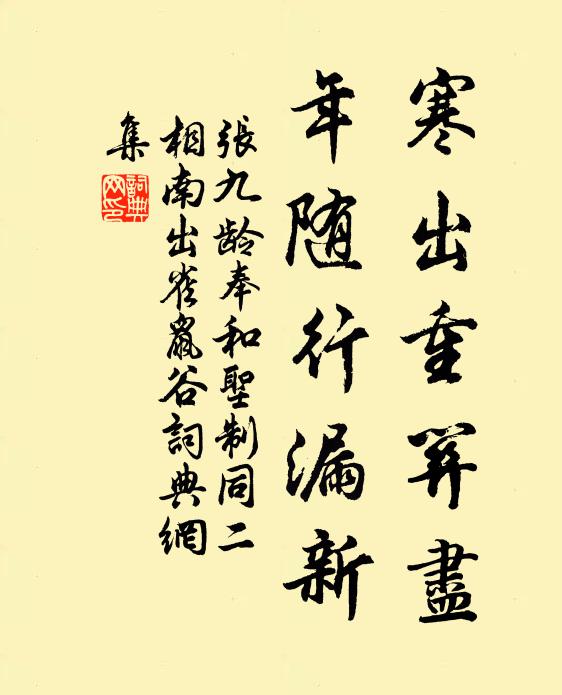 寒出重關盡
年随行漏新
張九龄奉和聖制同二
相南出雀鼠谷詞典網
集
詞典網印